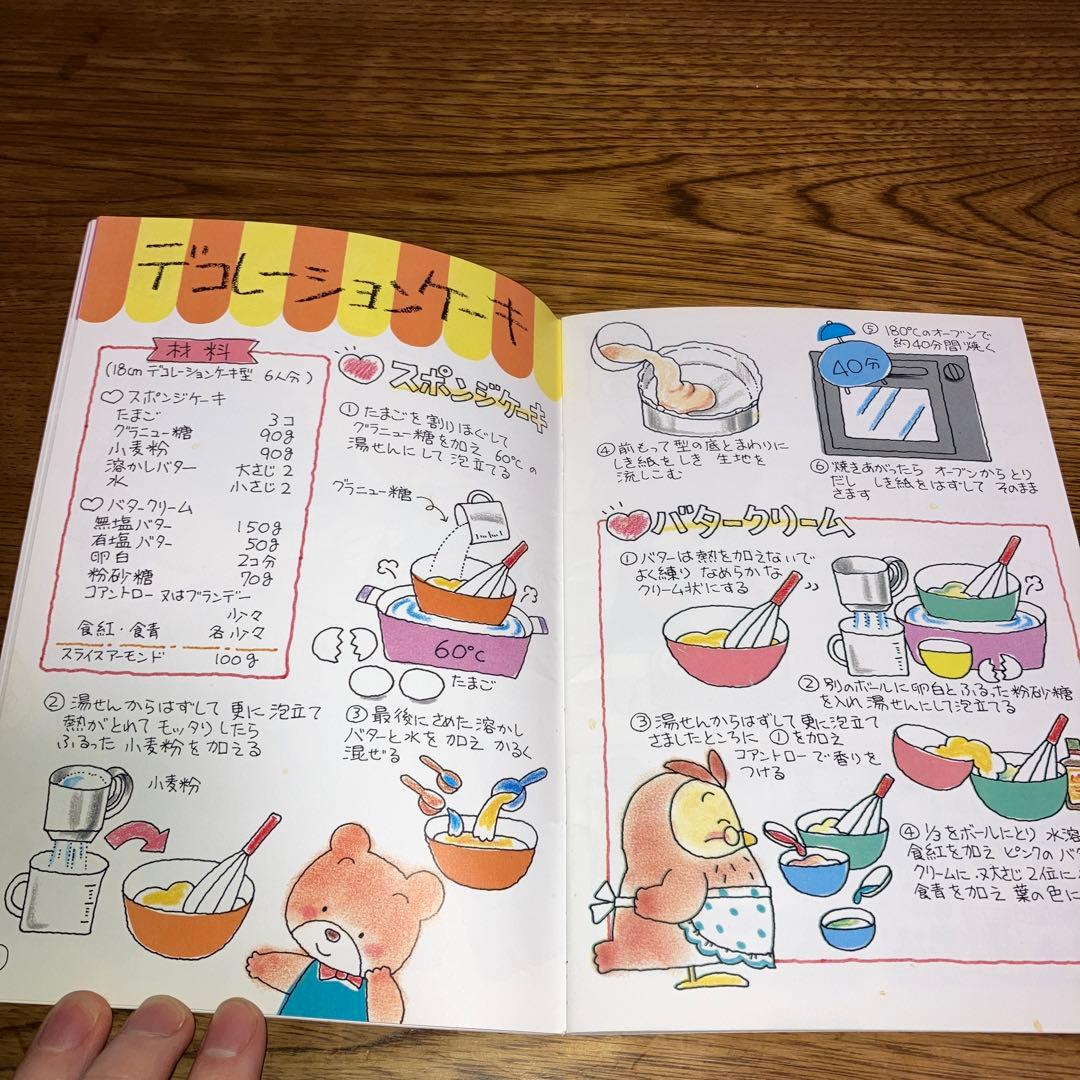 デコレーションケーキ
材料
(18cm デコレーションケーキ型 6人分)
♡ スポンジケーキ
たまご 3コ
グラニュー糖 90g
小麦粉 90g
溶かしバター 大さじ2
水 小さじ2
♡ バタークリーム
無塩バター 150g
有塩バター 50g
卵白 2コ分
粉砂糖 70g
コアントロー又はブランデー
少々
食紅・食青 各少々
スライスアーモンド 100g
スポンジケーキ
① たまごを割りほぐして
グラニュー糖を加え 60℃の
湯せんにして泡立てる
グラニュー糖
60℃
たまご
② 湯せんからはずして 更に泡立て
熱がとれて モッタリしたら
ふるった 小麦粉を加える
小麦粉
③ 最後にさめた溶かし
バターと水を加え かるく
混ぜる
④ 前もって型の底とまわりに
しき紙をしき 生地を
流しこむ
⑤ 180℃のオーブンで
約40分間焼く
40分
⑥ 焼きあがったら オーブンからとり
だし しき紙をはずして そのまま
さます
バタークリーム
① バターは熱を加えないで
よく練り なめらかな
クリーム状にする
② 別のボールに卵白とふるった粉砂糖
を入れ 湯せんにして泡立てる
③ 湯せんからはずして更に泡立て
さましたところに ①を加え
コアントローで香りを
つける
④ 1/3をボールにとり 水溶
食紅を加え ピンクのバタ
クリームに 又大さじ2位に
食青を加え 葉の色に